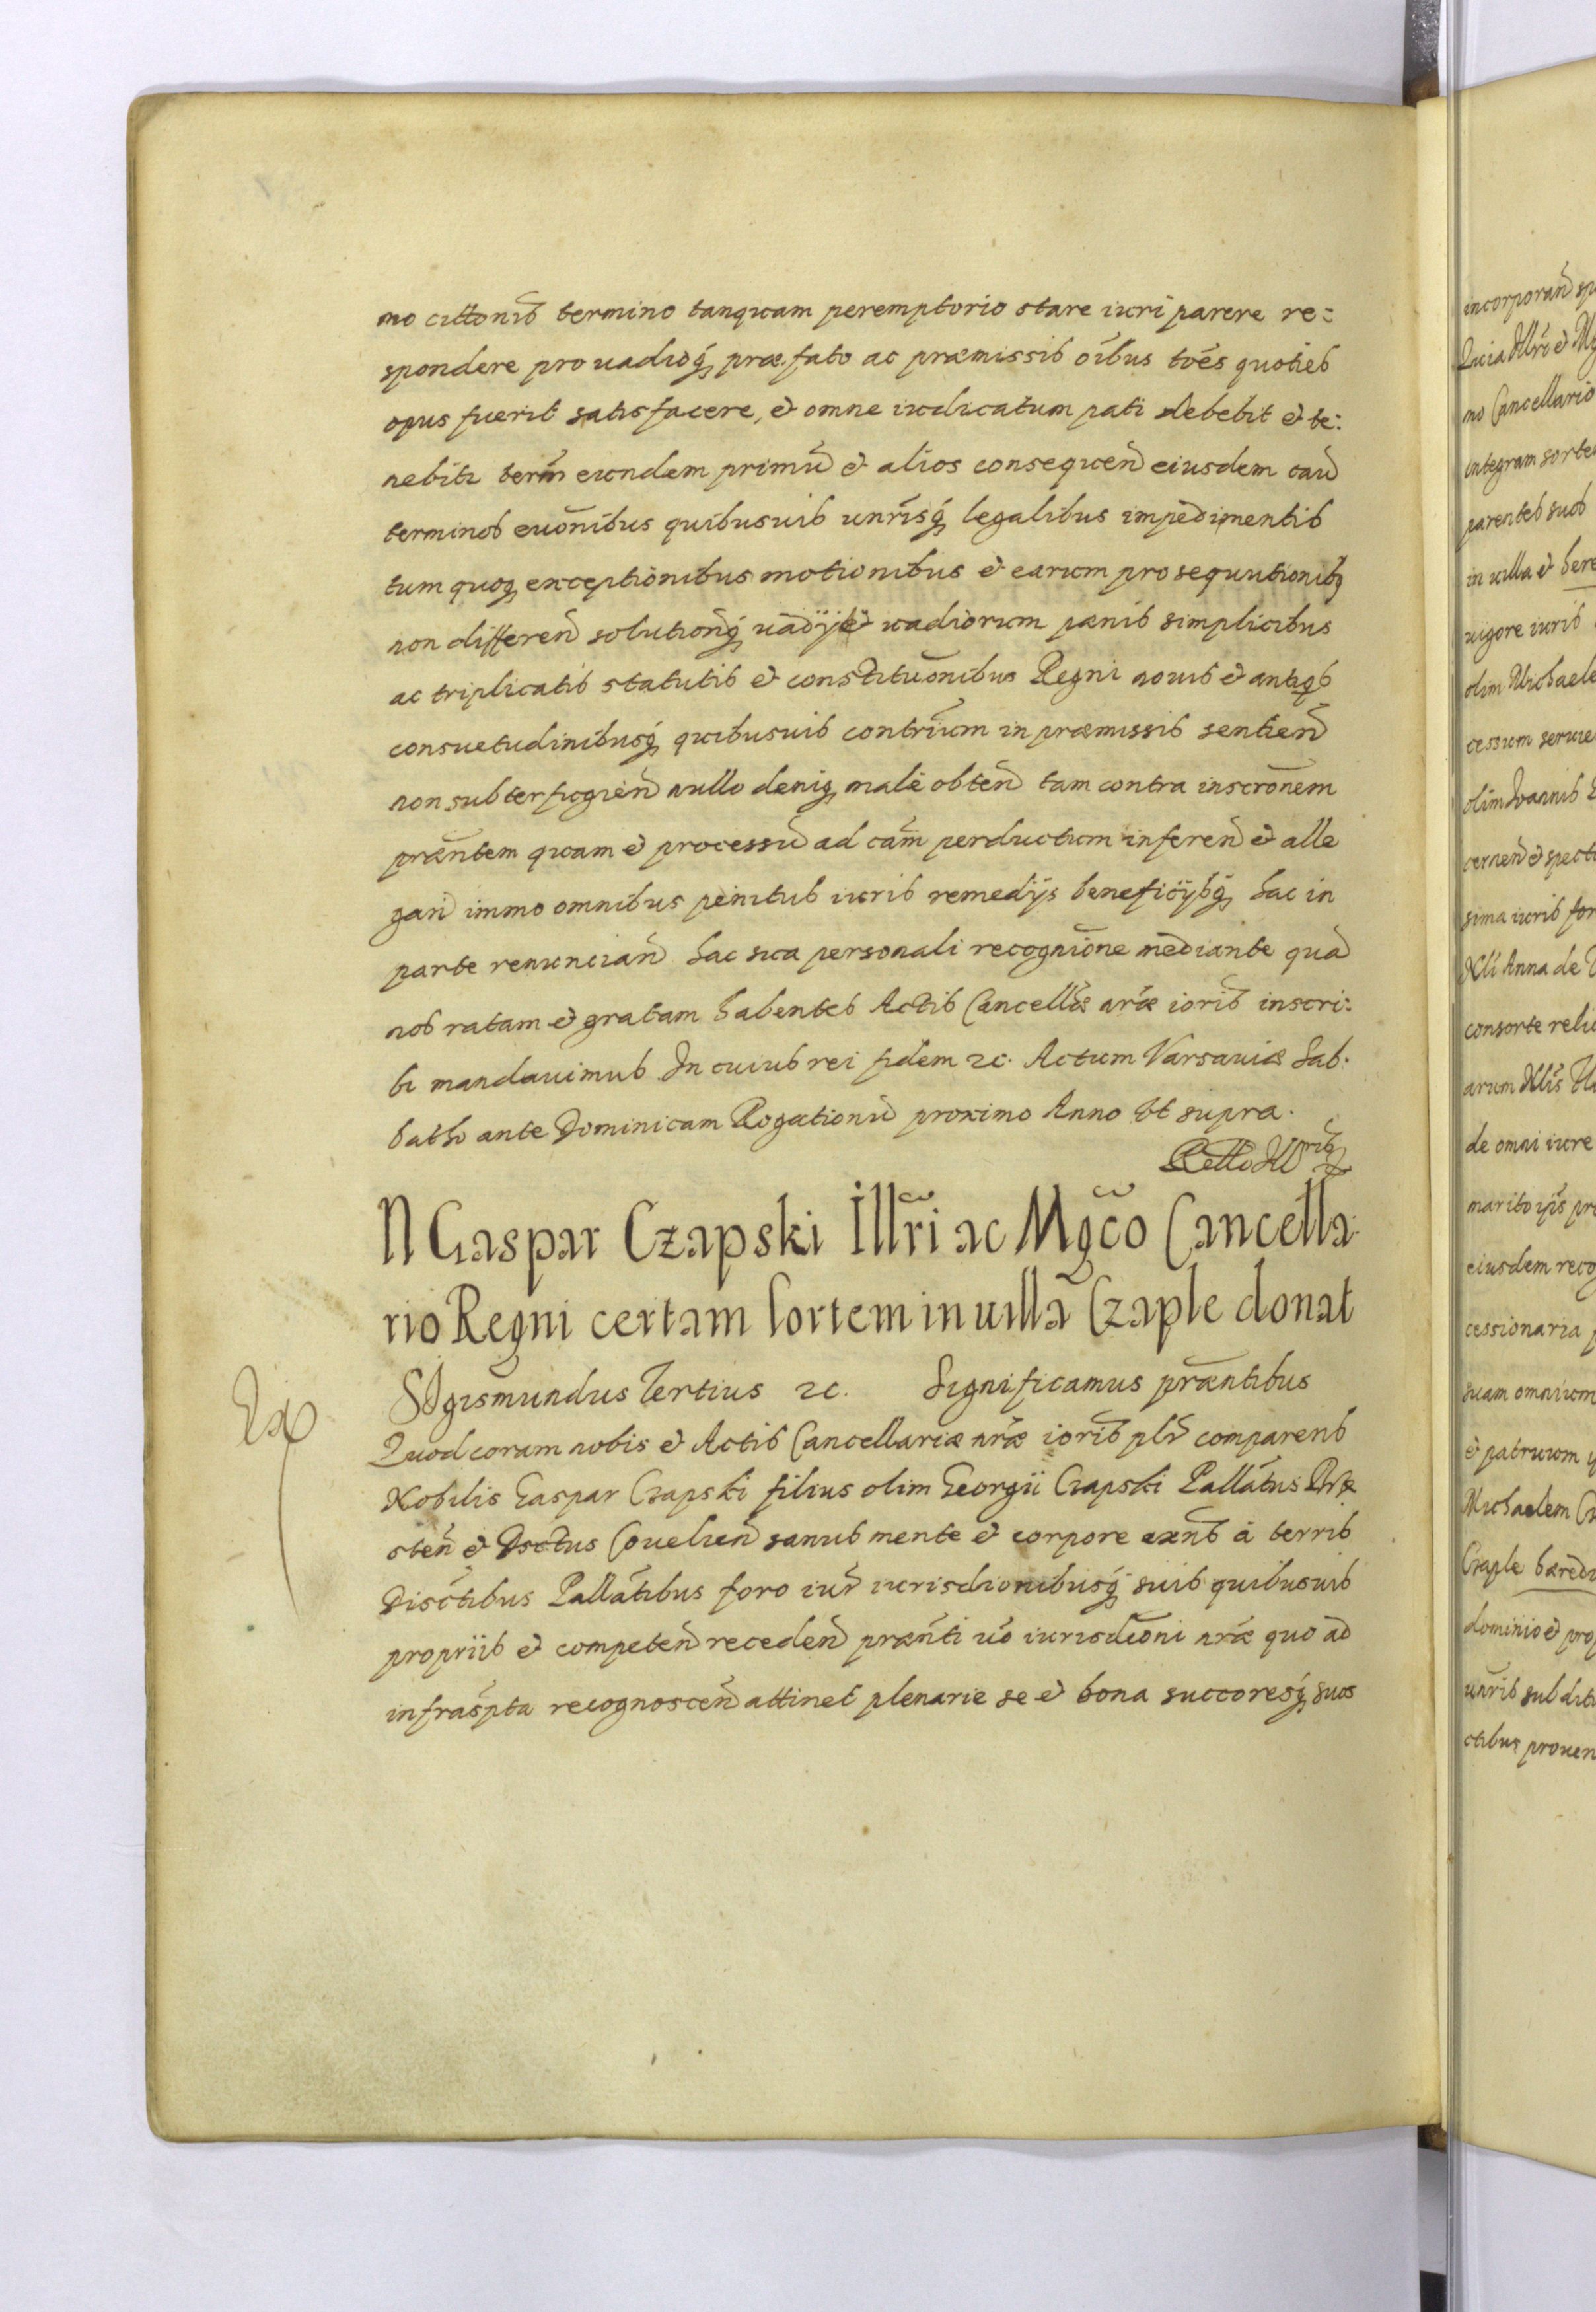 mo cittōnis termino tanquam peremptorio stare iuri parere re:
spondere pro uadioq́ præfato ac præmissis oībus toēs quoties
opus fuerit satisfacere, et omne iudicatum pati debebit et te:
nebitr terīn eundem primū et alios consequeñ eiusdem cau
terminos euōnibus quibusuis unr̄isq́ legalibus impedimentis
tum quoq exceptionibus motionibus et earum prosequutionibq
non differeñ solutionq́ uadÿ et uadiorum pænis simplicibus
ac triplicatis statutis et constituōnibus Regni nouis et antiqs
consuetudinibusq́ quibusuis contrīum in præmissis sentieñ
non subterfugieñ nullo deniq male obteñ tam contra inscrōnem
præn̄tem quam et processū ad eām perductum infereñ et alle
gañ immo omnibus penitus iuris remedÿs beneficÿsq́ hac in
parte renunciañ hac sua personali recogniōne mediante quā
nos ratam et gratam habentes Actis Cancellīæ nr̄æ ioris inscri:
bi mandauimus In cuius rei fidem 2c. Actum Varsauiæ Sab:
batho ante Dominicam Rogationū proximo Anno Vt supra.
N Gaspar Czapski Illr̄i ac Mgc̄o Cancella
rio Regni certam sortem in uilla Czaple donat
Ex
SIgismundus Tertius 2c. Significamus præn̄tibus
Quod coram nobis et Actis Cancellariæ nr̄æ ioris plr comparens
Nobilis Gaspar Czapski filius olim Georgii Czapski Pallātus
steñ et Conelieñ sanus mente et corpore exn̄s à terris
Disctībus Pallātibus foro iur iurisdionibusq́ suis quibusuis
propriis et competeñ recedeñ præn̄ti uō iurisdiōni nr̄æ quo ad
infraspta recognosceñ attinet plenarie se et bona succoresq́ suos
incorporañ
Quia Illr̄i et
mo Cancellario
integram
parentes suos
in uilla et
uigore iuris
olim Michaele
cessum
olim Ioannis
cerneñ et
sima iuris
Anna de
consorte
arum
de omni iure
marito
eiusdem
cessionaria
suam omnium
et patruum
Michaelem
Czaple
dominio et
subdit
ctibus